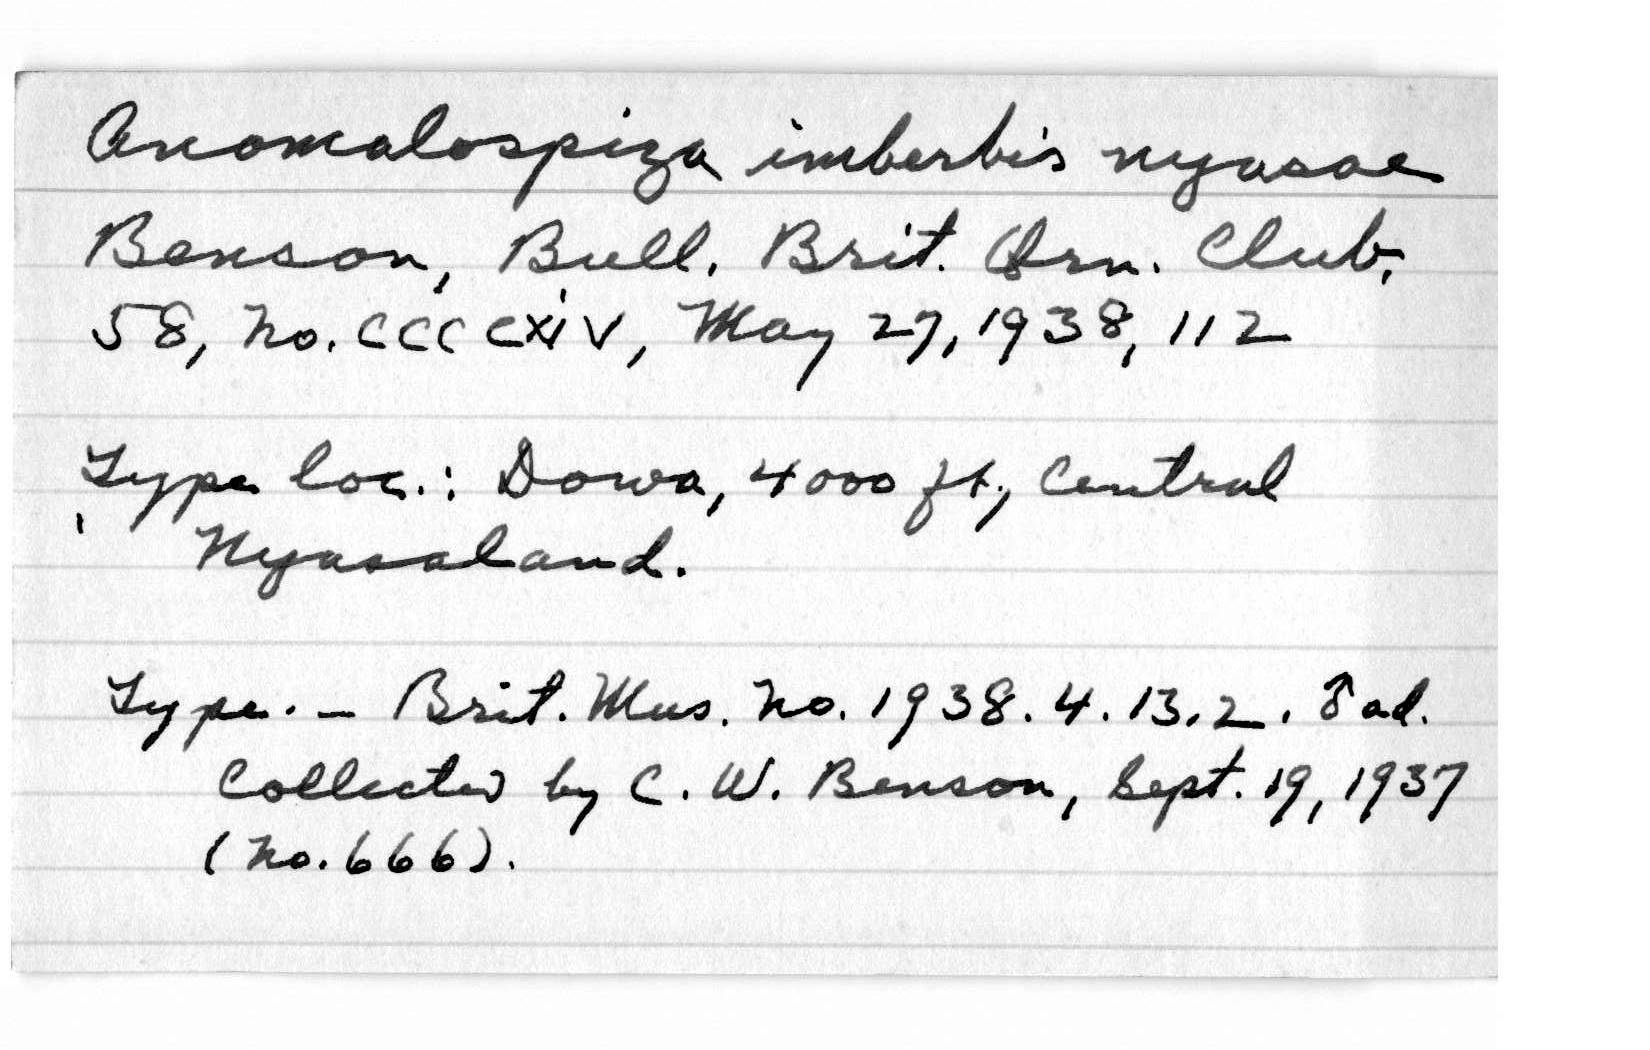 Anomalospiza imberbis nyasae
Benson, Bull. Brit. Orn. Club,
58, no. CCCCXIV, May 27, 1938, 112
Type loc.: Dowa, 4000 ft., Central
Nyasaland.
Type. - Brit. Mus. No. 1938.4.13.2. ♂ ad.
Collected by C. W. Benson, Sept. 19, 1937
(No. 666).